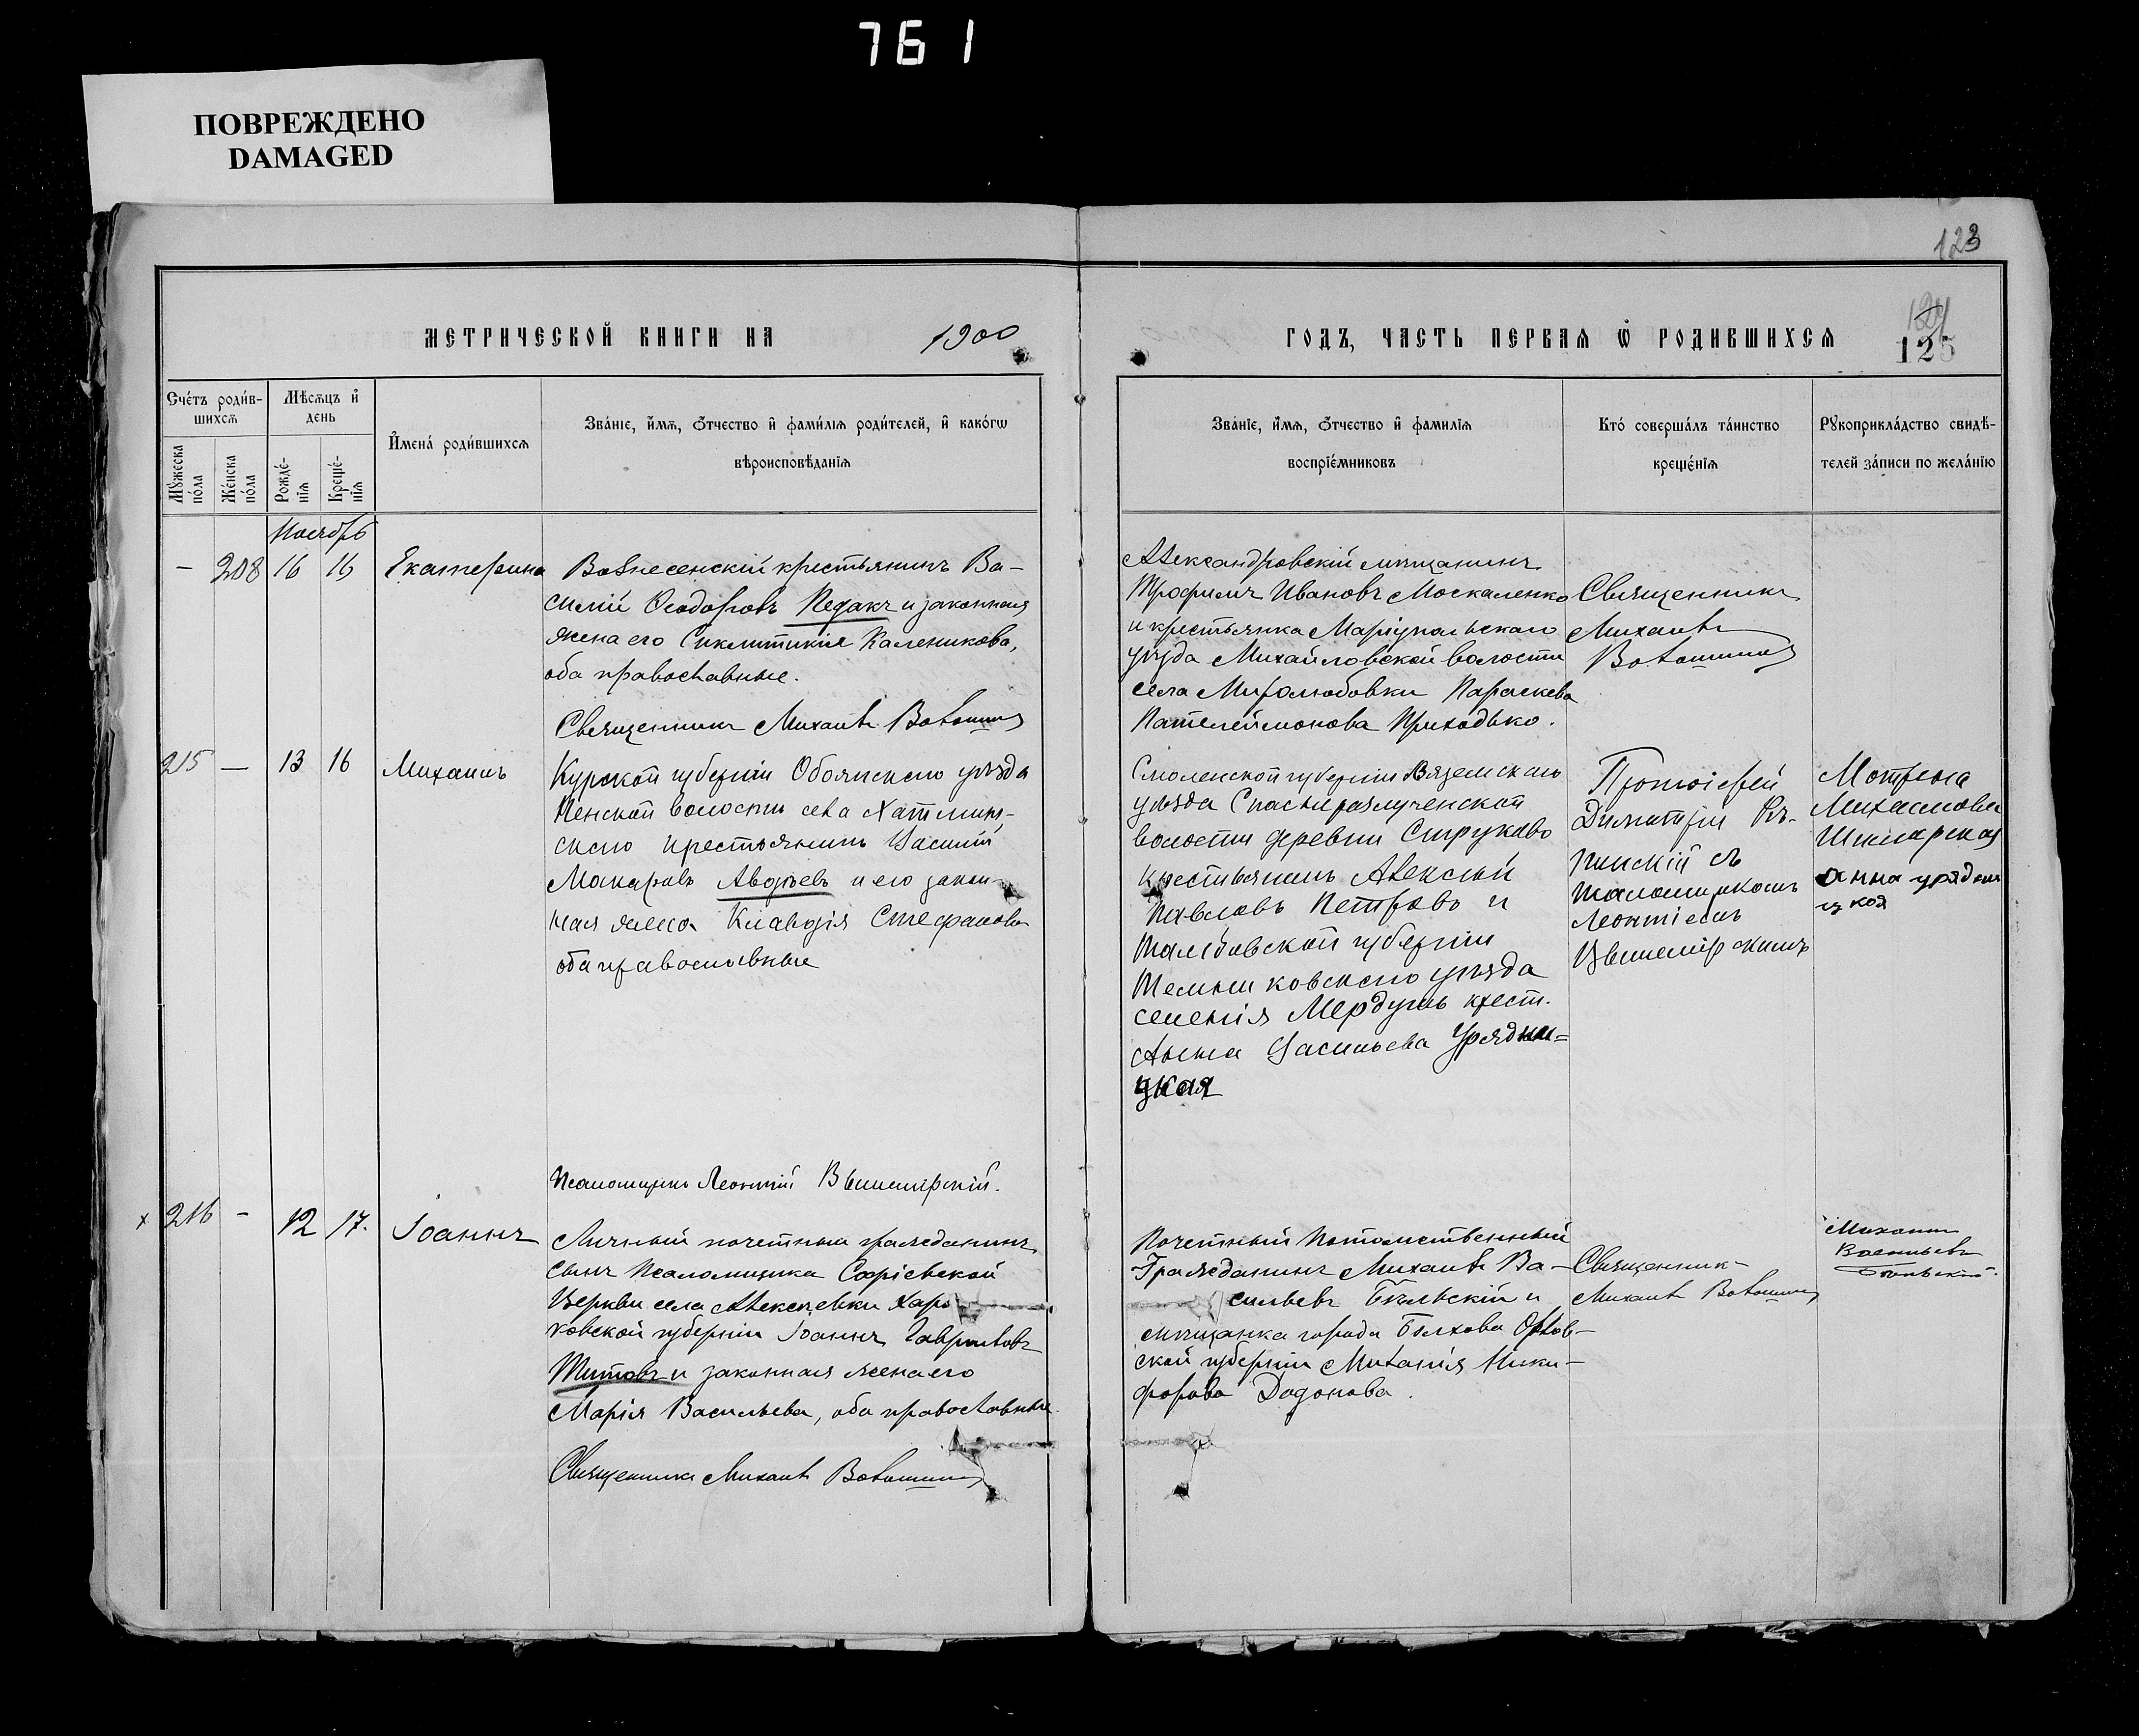 761
ПОВРЕЖДЕНО
DAMAGED
123
МЕТРИЧЕСКОЙ КНИГИ НА 1900
ГОДЪ, ЧАСТЬ ПЕРВАѦ Ѿ РОДИВШИХСѦ
125
Счéтъ роди́в-
шихсѧ
Мѣсѧцъ и҆
день
И҆мена́ роди́вшихсѧ
Зва́нїе, и҆́мѧ, ѻ҆́тчество и҆ фами́лїѧ роди́телей, и҆ како́гѡ
вѣроисповѣ́данїѧ
Мꙋ́жеска
по́ла
Же́нска
по́ла
Рожде́-
нїѧ
Креще́-
нїѧ
Зва́нїе, и҆́мѧ, ѻ҆́тчество и҆ фами́лїѧ
воспрїе́мниковъ
Кто́ соверша́лъ та́инство
креще́нїѧ
Рꙋкоприкла́дство свидѣ́-
телей за́писи по жела́нїю
Ноябрь
— 208 16 16 Екатерина
Вознесенскій крестьянинъ Ва-
силій Ѳеодоровъ Педакъ и законная
жена его Сиклитикія Каленикова,
оба православные.
Священникъ Михаилъ Волошин
Александровскій мѣщанинъ
Трофимъ Ивановъ Москаленко
и крестьянка Маріупольскаго
уѣзда Михайловской волости
села Миролюбовки Параскева
Пателеймонова Приходько.
Священникъ
Михаилъ
Волошин
215 — 13 16 Михаилъ
Курской губерніи Обоянскаго уѣзда
Пенской волости села
крестьянинъ Василій
Макаровъ Авдѣевъ и его закон-
ная жена Клавдія Стефанова
оба православные
Псаломщикъ Леонтій Вышемірскій.
Смоленской губерніи Вяземскаго
уѣзда
волости деревни Струково
крестьянинъ Алексѣй
Павловъ Петровъ и
Тамбовской губерніи
Темниковскаго уѣзда
селенія Мердушъ крест.
Анна Васильева Урядни=
цкая
Протоіерей
Димитрій Рѣ-
пинскій съ
псаломщикомъ
Леонтіемъ
Вышемірскимъ
Мотрена
Михаилова
Анна урядни
цкая
х 216 - 12 17. Іоаннъ
Личный почетный гражданинъ,
сынъ псаломщика Софіевской
Церкви села Алексѣевки Харь
ковской губерніи Іоаннъ Гавриловъ
Титовъ и законная жена его
Марія Васильева, оба православные.
Священникъ Михаилъ Волошин
Почетный Потомственный
Гражданинъ Михаилъ Ва-
сильевъ Бѣльскій и
мѣщанка города Болхова Орлов-
ской губерніи Миланія Ники-
форова Додонова.
Священник-
Михаилъ Волошин
Михаилъ
Васильевъ
Бѣльскій.